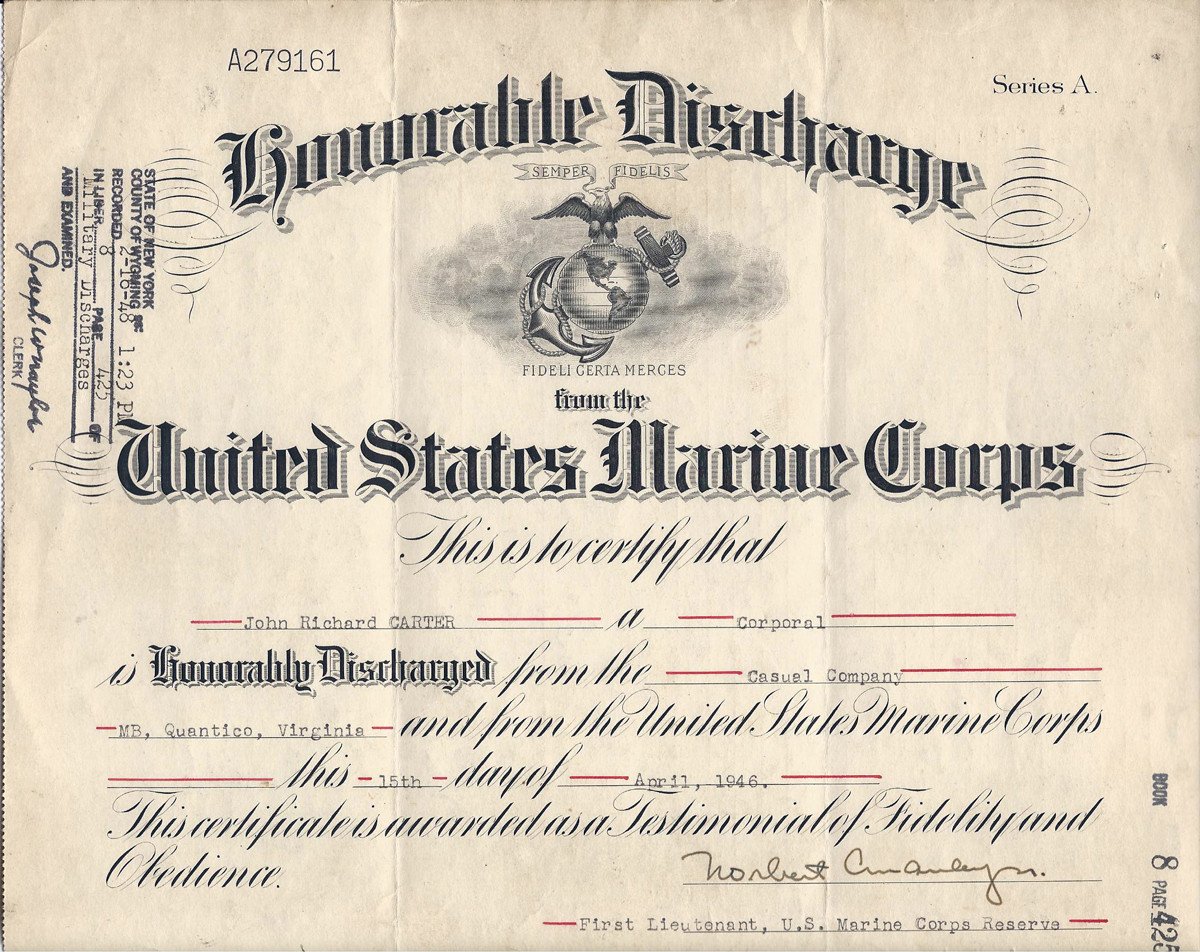 A279161
Series A.
Honorable Discharge
SEMPER FIDELIS
FIDELI CERTA MERCES
from the
United States Marine Corps
This is to certify that
John Richard CARTER a Corporal
is Honorably Discharged from the Casual Company
MB, Quantico, Virginia and from the United States Marine Corps
this 15th day of April, 1946.
This certificate is awarded as a Testimonial of Fidelity and
Obedience.
Norbert
First Lieutenant, U.S. Marine Corps Reserve
STATE OF NEW YORK
COUNTY OF WYOMING
RECORDED 2-16-48 1:23 PM
IN LIBER 8 PAGE 425 OF
Military Discharges
AND EXAMINED.
Joseph
CLERK
BOOK 8 PAGE 425